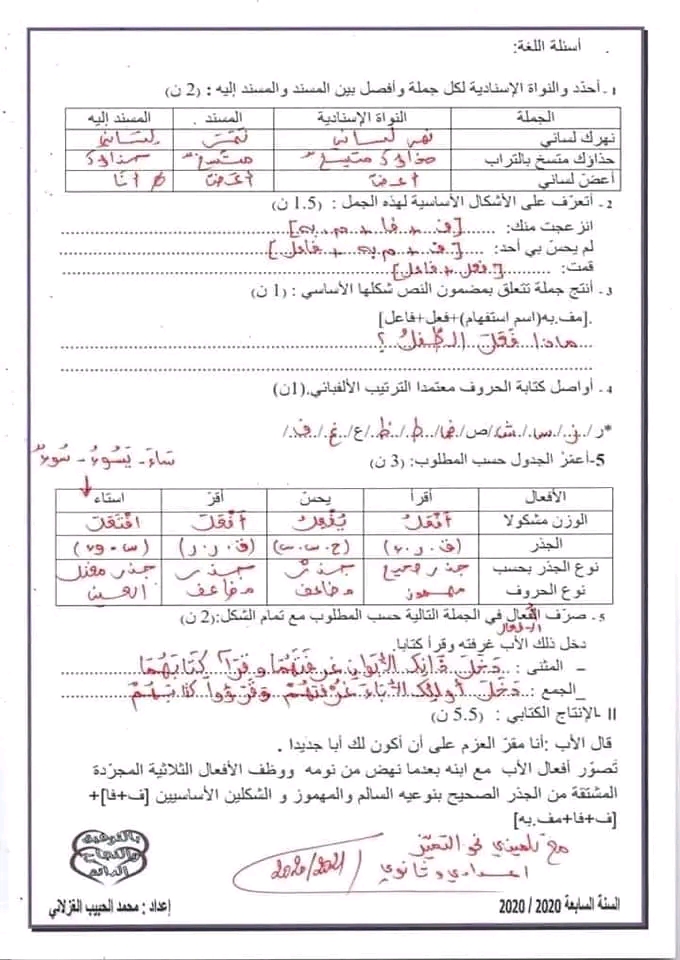 أسئلة اللغة:
1 - أحدّد والنواة الإسنادية لكل جملة وأفصل بين المسند والمسند إليه : (2 ن)
الجملة النواة الإسنادية المسند . المسند إليه
نهرك لساني نهر لساني نهر لساني
حذاؤك متسخ بالتراب حذاؤك متسخ متسخ حذاؤك
أعضّ لساني أعضّ أعضّ أنا
2 - أتعرّف على الأشكال الأساسية لهذه الجمل : (1.5 ن)
انزعجت منك: [ف + فا + م.به]
لم يحسّ بي أحد: [ف + م به + فاعل]
قمت: [فعل + فاعل]
3 - أنتج جملة تتعلق بمضمون النص شكلها الأساسي : (1 ن)
.[مف.به(اسم استفهام)+فعل+فاعل]
ماذا فَعَلَ الطّفلُ ؟
4 - أواصل كتابة الحروف معتمدا الترتيب الألفبائي.(1ن)
*ر/ز/س/ش/ص/ض/ط/ظ/ع/غ/ف/
5-أعمّر الجدول حسب المطلوب: (3 ن)
سَاءَ - يَسُوءُ - سُوءٌ
الأفعال أقرأ يحسّ أقرّ استاء
الوزن مشكولا أَفْعَلُ يُفْعِلُ أَفْعَلَ افْتَعَلَ
الجذر (ق.ر.ء) (ح.س.س) (ق.ر.ر) (س.و.ء)
نوع الجذر بحسب جذر صحيح جذر جذر جذر معتل
نوع الحروف مهموز مضاعف مضاعف العين
5 - صرّف الفعال في الجملة التالية حسب المطلوب مع تمام الشكل:(2 ن)
الأفعال
دخل ذلك الأب غرفته وقرأ كتابا.
– المثنى : دَخَلَ ذَانِكَ الأَبَوَانِ غُرْفَتَهُمَا وقَرَآ كِتَابَهُمَا
_الجمع : دَخَلَ أولئِكَ الآبَاءُ غُرْفَتَهُمْ وَقَرَؤُوا كتابَهُمْ
II -الإنتاج الكتابي : (5.5 ن)
قال الأب :أنا مقرّ العزم على أن أكون لك أبا جديدا .
تَصوّر أفعال الأب مع ابنه بعدما نهض من نومه ووظف الأفعال الثلاثية المجرّدة
المشتقة من الجذر الصحيح بنوعيه السالم والمهموز و الشكلين الأساسيين [ف+فا]+
[ف+فا+مف.به]
مع تلميذي نحو التميّز
اعدادي وثانوي
2020/2021
بالتوفيق
والنجاح
الدائم
السنة السابعة 2020 / 2020
إعداد : محمد الحبيب الغزلاني